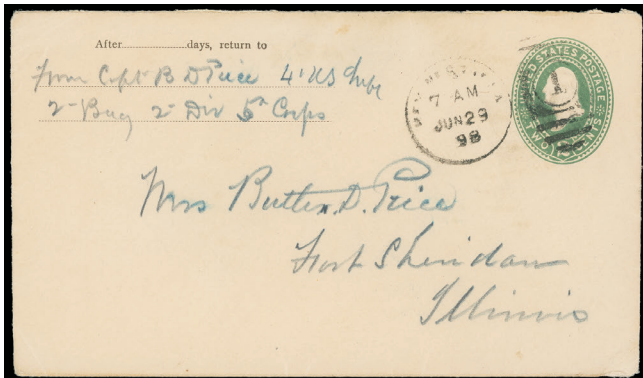 After..............days, return to
From Capt B D Price 4' US Infy
2- Brig 2- Div 5" Corps
7 AM
JUN 29
98
UNITED STATES POSTAGE
TWO CENTS
1
Mrs Butler. D. Price
Fort Sheridan
Illinois